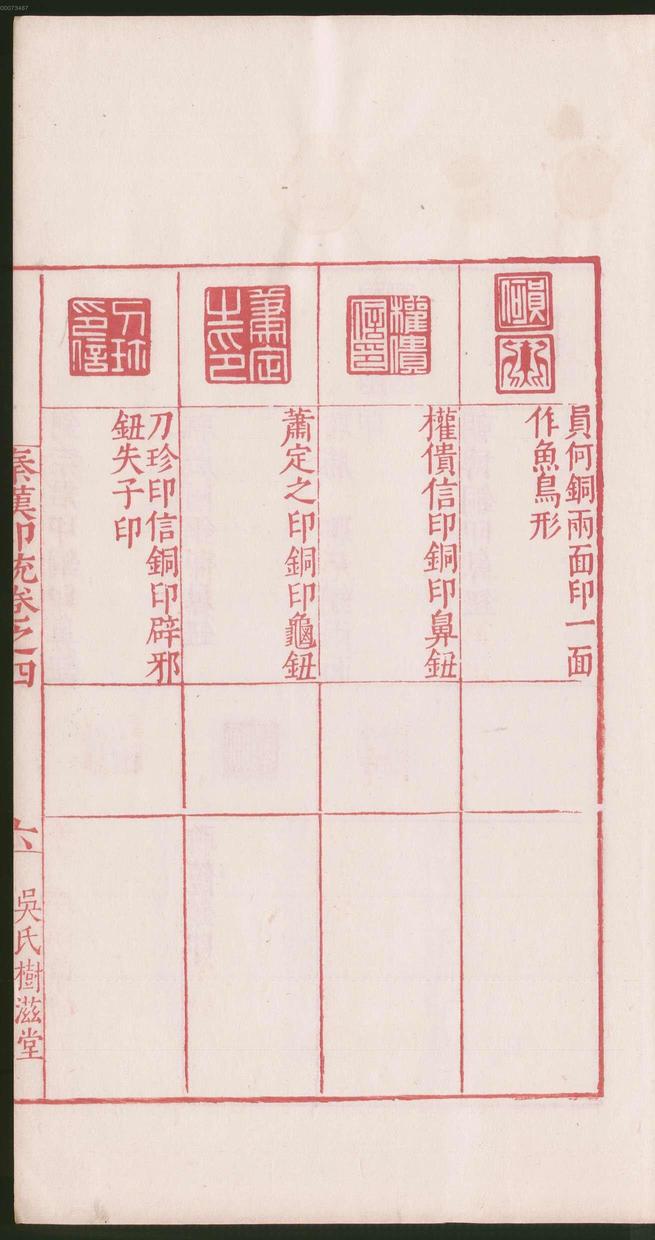 00073467
員何銅兩面印一面
作魚鳥形
權僓信印銅印鼻鈕
蕭定之印銅印龜鈕
刀珍印信銅印辟邪
鈕失子印
秦漢印統卷之四
六
吳氏樹滋堂